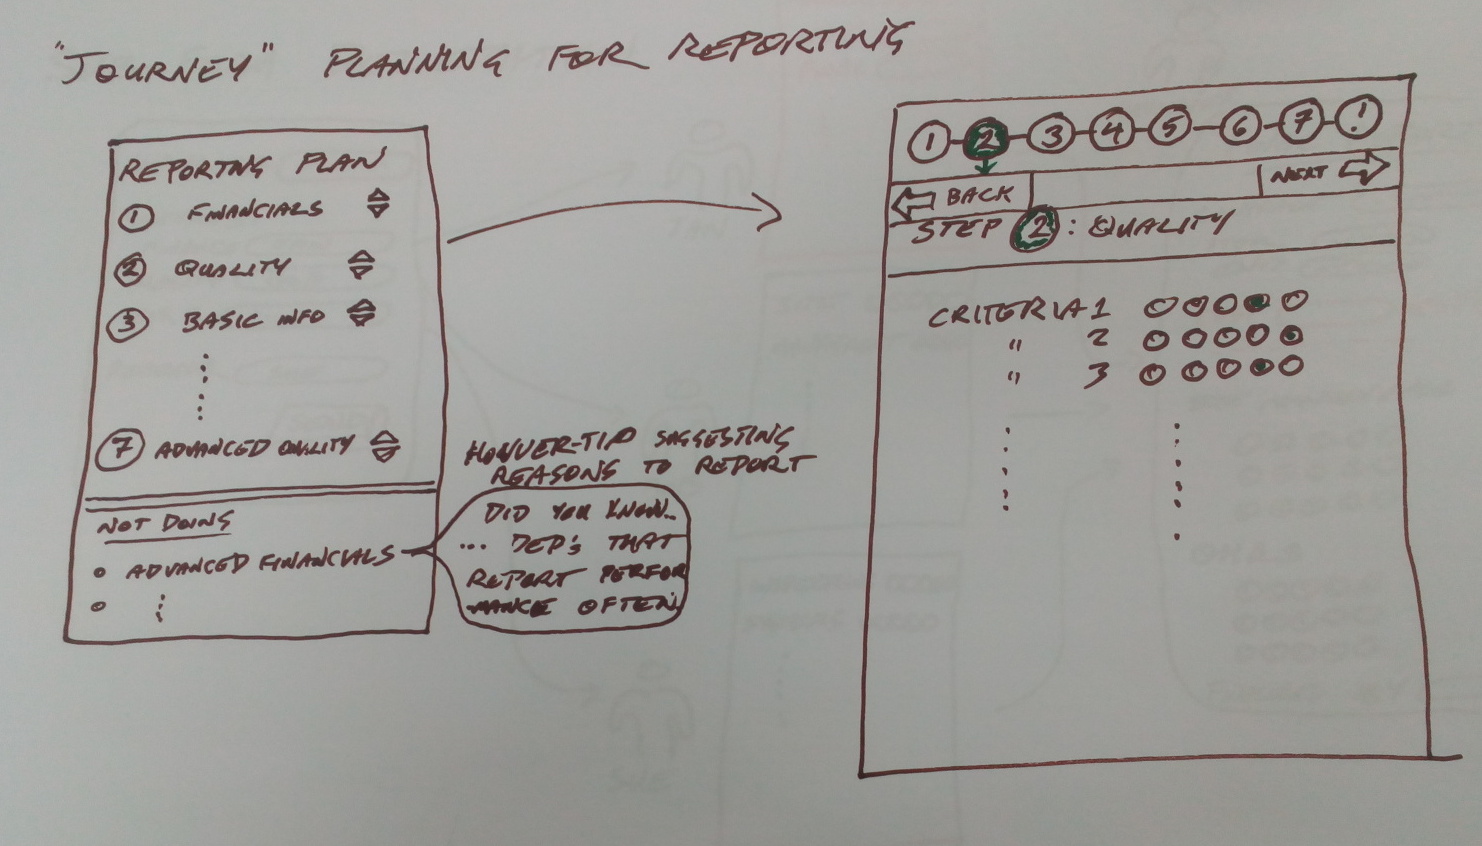 "JOURNEY" PLANNING FOR REPORTING
REPORTING PLAN
1 FINANCIALS
2 QUALITY
3 BASIC INFO
7 ADVANCED QUALITY
NOT DOING
ADVANCED FINANCIALS
HOUVER-TIP SUGGESTING
REASONS TO REPORT
DID YOU KNOW..
... DEP'S THAT
REPORT PERFOR
MANCE OFTEN
1 2 3 4 5 6 7 !
BACK
NEXT
STEP 2: QUALITY
CRITERIA 1
" 2
" 3